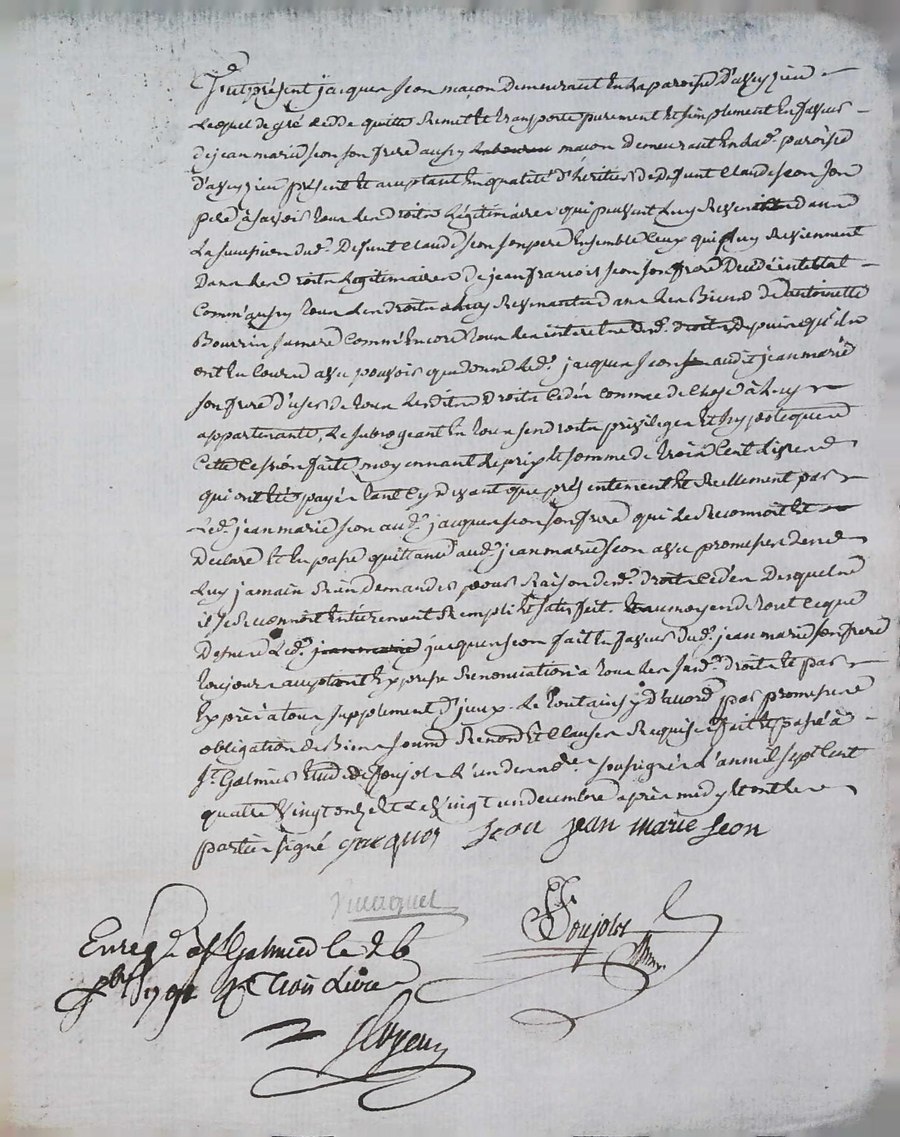 Fut présent jacques Seon maçon Demeurant En la paroisse D'aveyzieu
Lequel de gré cedde quitte Remet et transporte purement et simplement En faveur
de jean marie seon son frere aussy laboureur macon Demeurant En lad. paroisse
D'aveyzieu présent et acceptant En qualité d'heritier de deffunt Claude seon son
pere à savoir tous les droits légitimaires qui peuvent luy Revenir dans
La succession dud. Deffunt Claude seon son pere Ensemble Ceux qui luy Reviennent
Dans les droits légitimaires de jean francois seon son frere Décédé intestat
Comm'aussy tous les droits à luy Revenants dans les Biens de antoinette
Bourrin sa mere Comm'Encore tous les interets desd. droits depuis qu'ils
ont Eu Cours avec pouvoir que donne led. jacques seon audit jean marie
son frere d'user de tous lesdits Droits cédés comme de Chose à luy
appartenante, Le subrogeant En tous ses droits privileges Et hypoteques
Cette Cession faite moyennant le prix et somme de trois Cent livres
qui ont été payés tant Cy devant que présentement et Réellement par
Led. jean marie seon aud. jacques seon son frere qui le Reconnoit et
Déclare Et En passe quittance aud. jean marie seon avec promesse de ne
Luy jamais Rien demander pour Raison desd. droits Cédés Desquels
il se Reconnoit Entierement Rempli Et satisfait. au moyen de tout Ceque
Dessus Led. jean marie jacques seon fait En faveur dud. jean marie son frere
toujours acceptant Expresse Renonciation à tous les susd. droits Et par
Exprès à tous supplement d'iceux. Le tout ainsy d'accord par promesses
obligation de Biens soumd. Renond. Et Clauses Requises fait Et passé à
St. Galmier Etude de soujol L'un des nd.res soussignés L'an mil sept Cent
quatre vingt onze Et le vingt un decembre après midy Et ont les
parties signé jacques Seon jean marie Seon
Soujol
Enrég. à St Galmier le 26
Xbre 1791 R. trois Livres